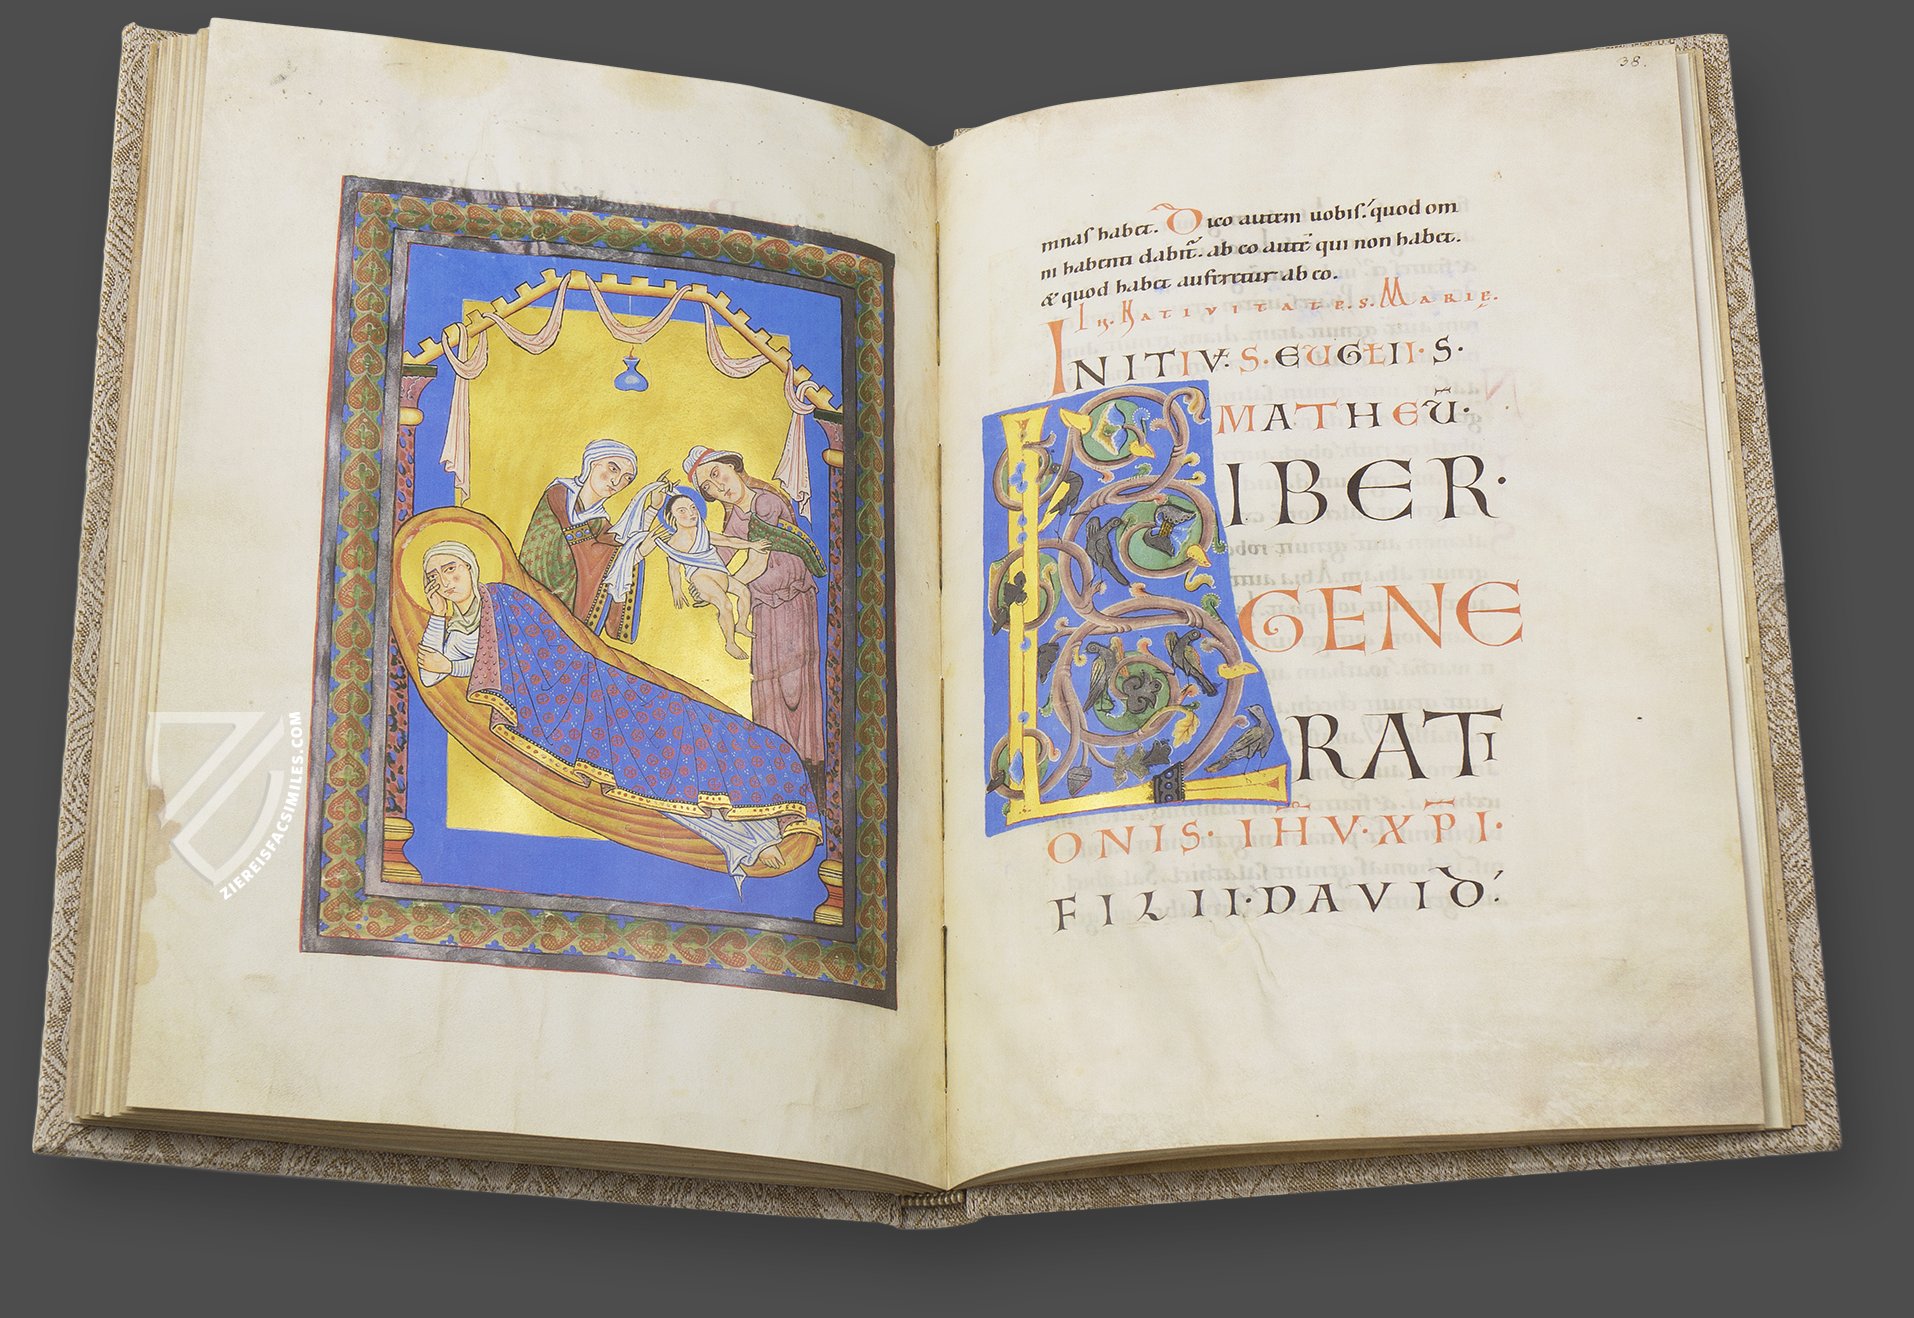 ZIEREISFACSIMILES.COM
38.
mnaſ habet. Dico autem uobiſ. quod om
ni habenti dabit̄. ab eo autē qui non habet.
& quod habet auferetur ab eo.
IN NATIVITATE. S. MARIĘ.
INITIV̄. S. EUGLII. S.
MATHEŪ.
LIBER.
GENE
RATI
ONIS. IHV. XPI.
FILII. DAVID.